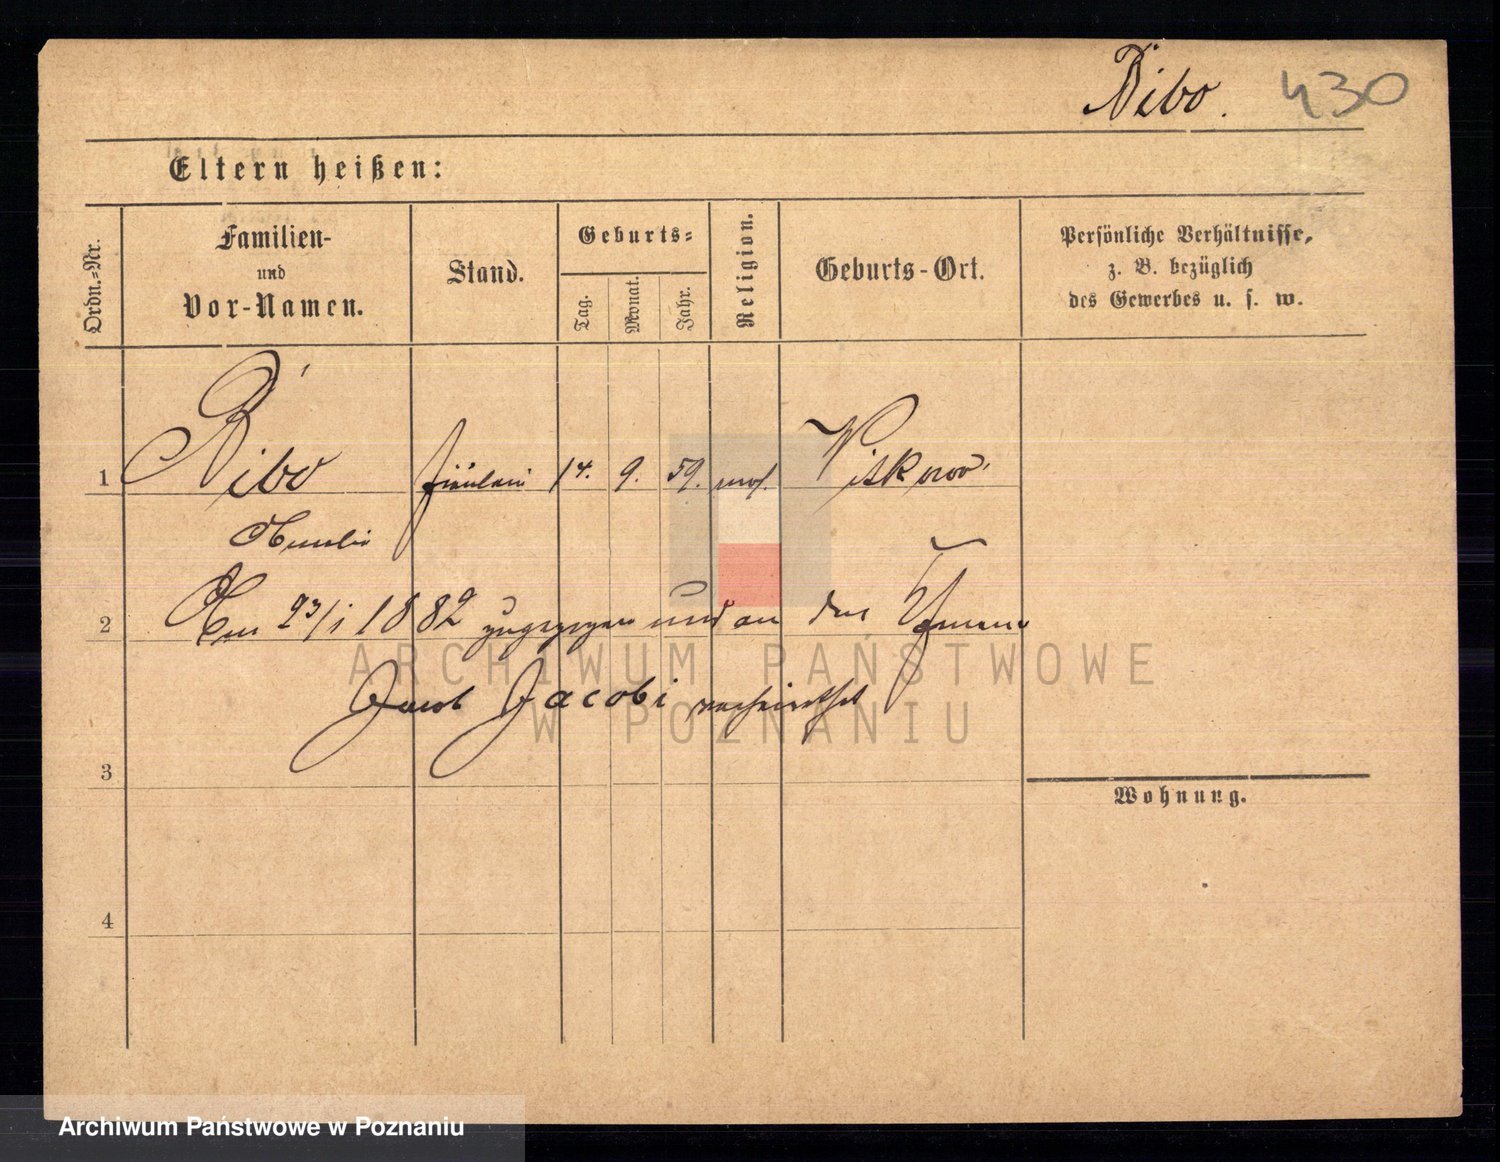 Bibo. 430
Eltern heißen:
Ordn.-Nr.
Familien-
und
Vor-Namen.
Stand.
Geburts-
Tag.
Monat.
Jahr.
Religion.
Geburts-Ort.
Persönliche Verhältnisse,
z. B. bezüglich
des Gewerbes u. s. w.
1 Bibo Fräulein 14. 9. 59. mos. Witkowo
2 1882 zugezogen und an den
Jacob Jacobi verheirathet
3
Wohnung.
4
ARCHIWUM PAŃSTWOWE
W POZNANIU
Archiwum Państwowe w Poznaniu